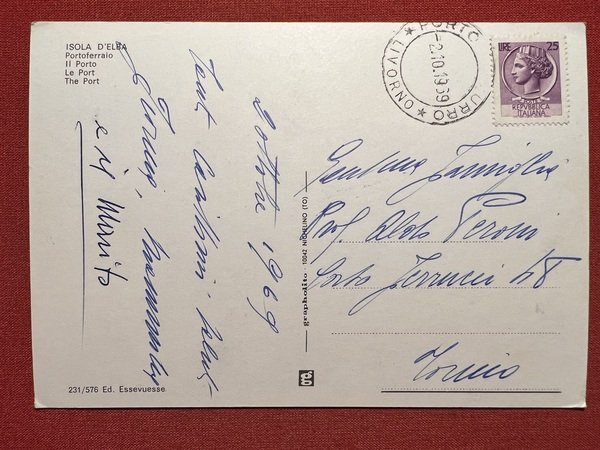 ISOLA D'ELBA
Portoferraio
Il Porto
Le Port
The Port
2 Ottobre 1969
Tanti carissimi saluti
e il Marito
231/576 Ed. Essevuesse
grapholito - 10042 NICHELINO (TO)
gg
PORTO AZZURRO
★ LIVORNO ★
-2.10.1969
LIRE 25
REPUBBLICA
ITALIANA
Gentma Famiglia
Prof. Aldo Peroni
Corso Ferrucci 48
Torino